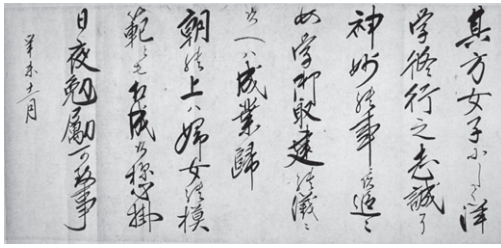 其方女子にして洋
学修行之志誠ニ
神妙之事ニ候追々
女学御取建之儀ニ
候ヘハ成業歸
朝之上ハ婦女之模
範とも相成候様心掛
日夜勉勵可致事
辛未十一月